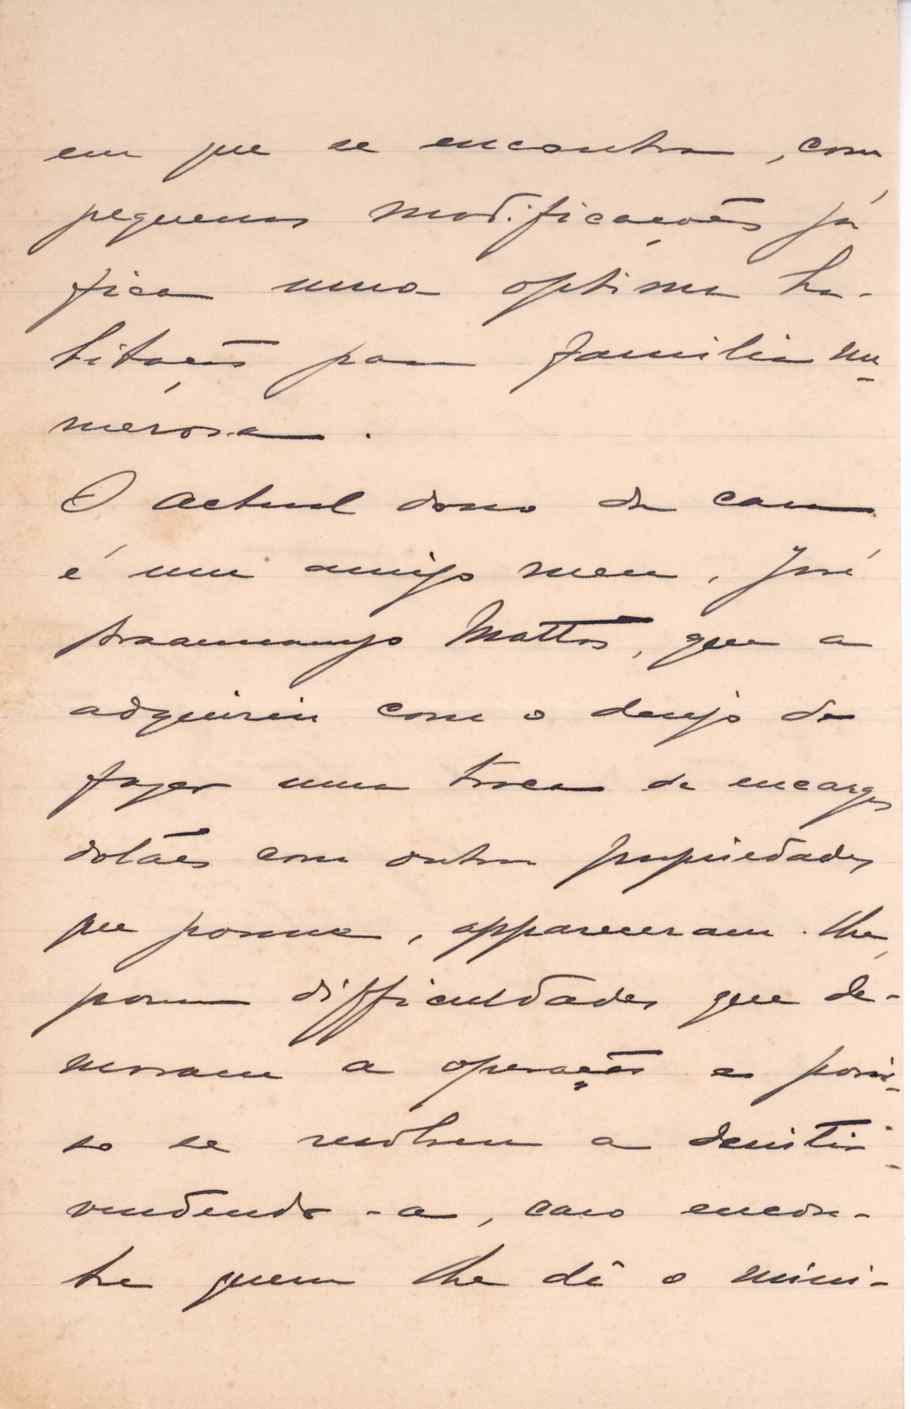 em que se encontra, com
pequenas modificações já
fica uma optima ha-
bitação para familia nu-
merosa.
O actual dono da casa
é um amigo meu, José
Mattos, que a
adquiriu com o desejo de
fazer uma troca de encargos
com outra propriedades
que possue, appareceram-lhe,
porem difficuldades que de-
moram a operação e poris-
so se resolveu a desistir
vendendo-a, caso encon-
tre quem lhe dê o mini-